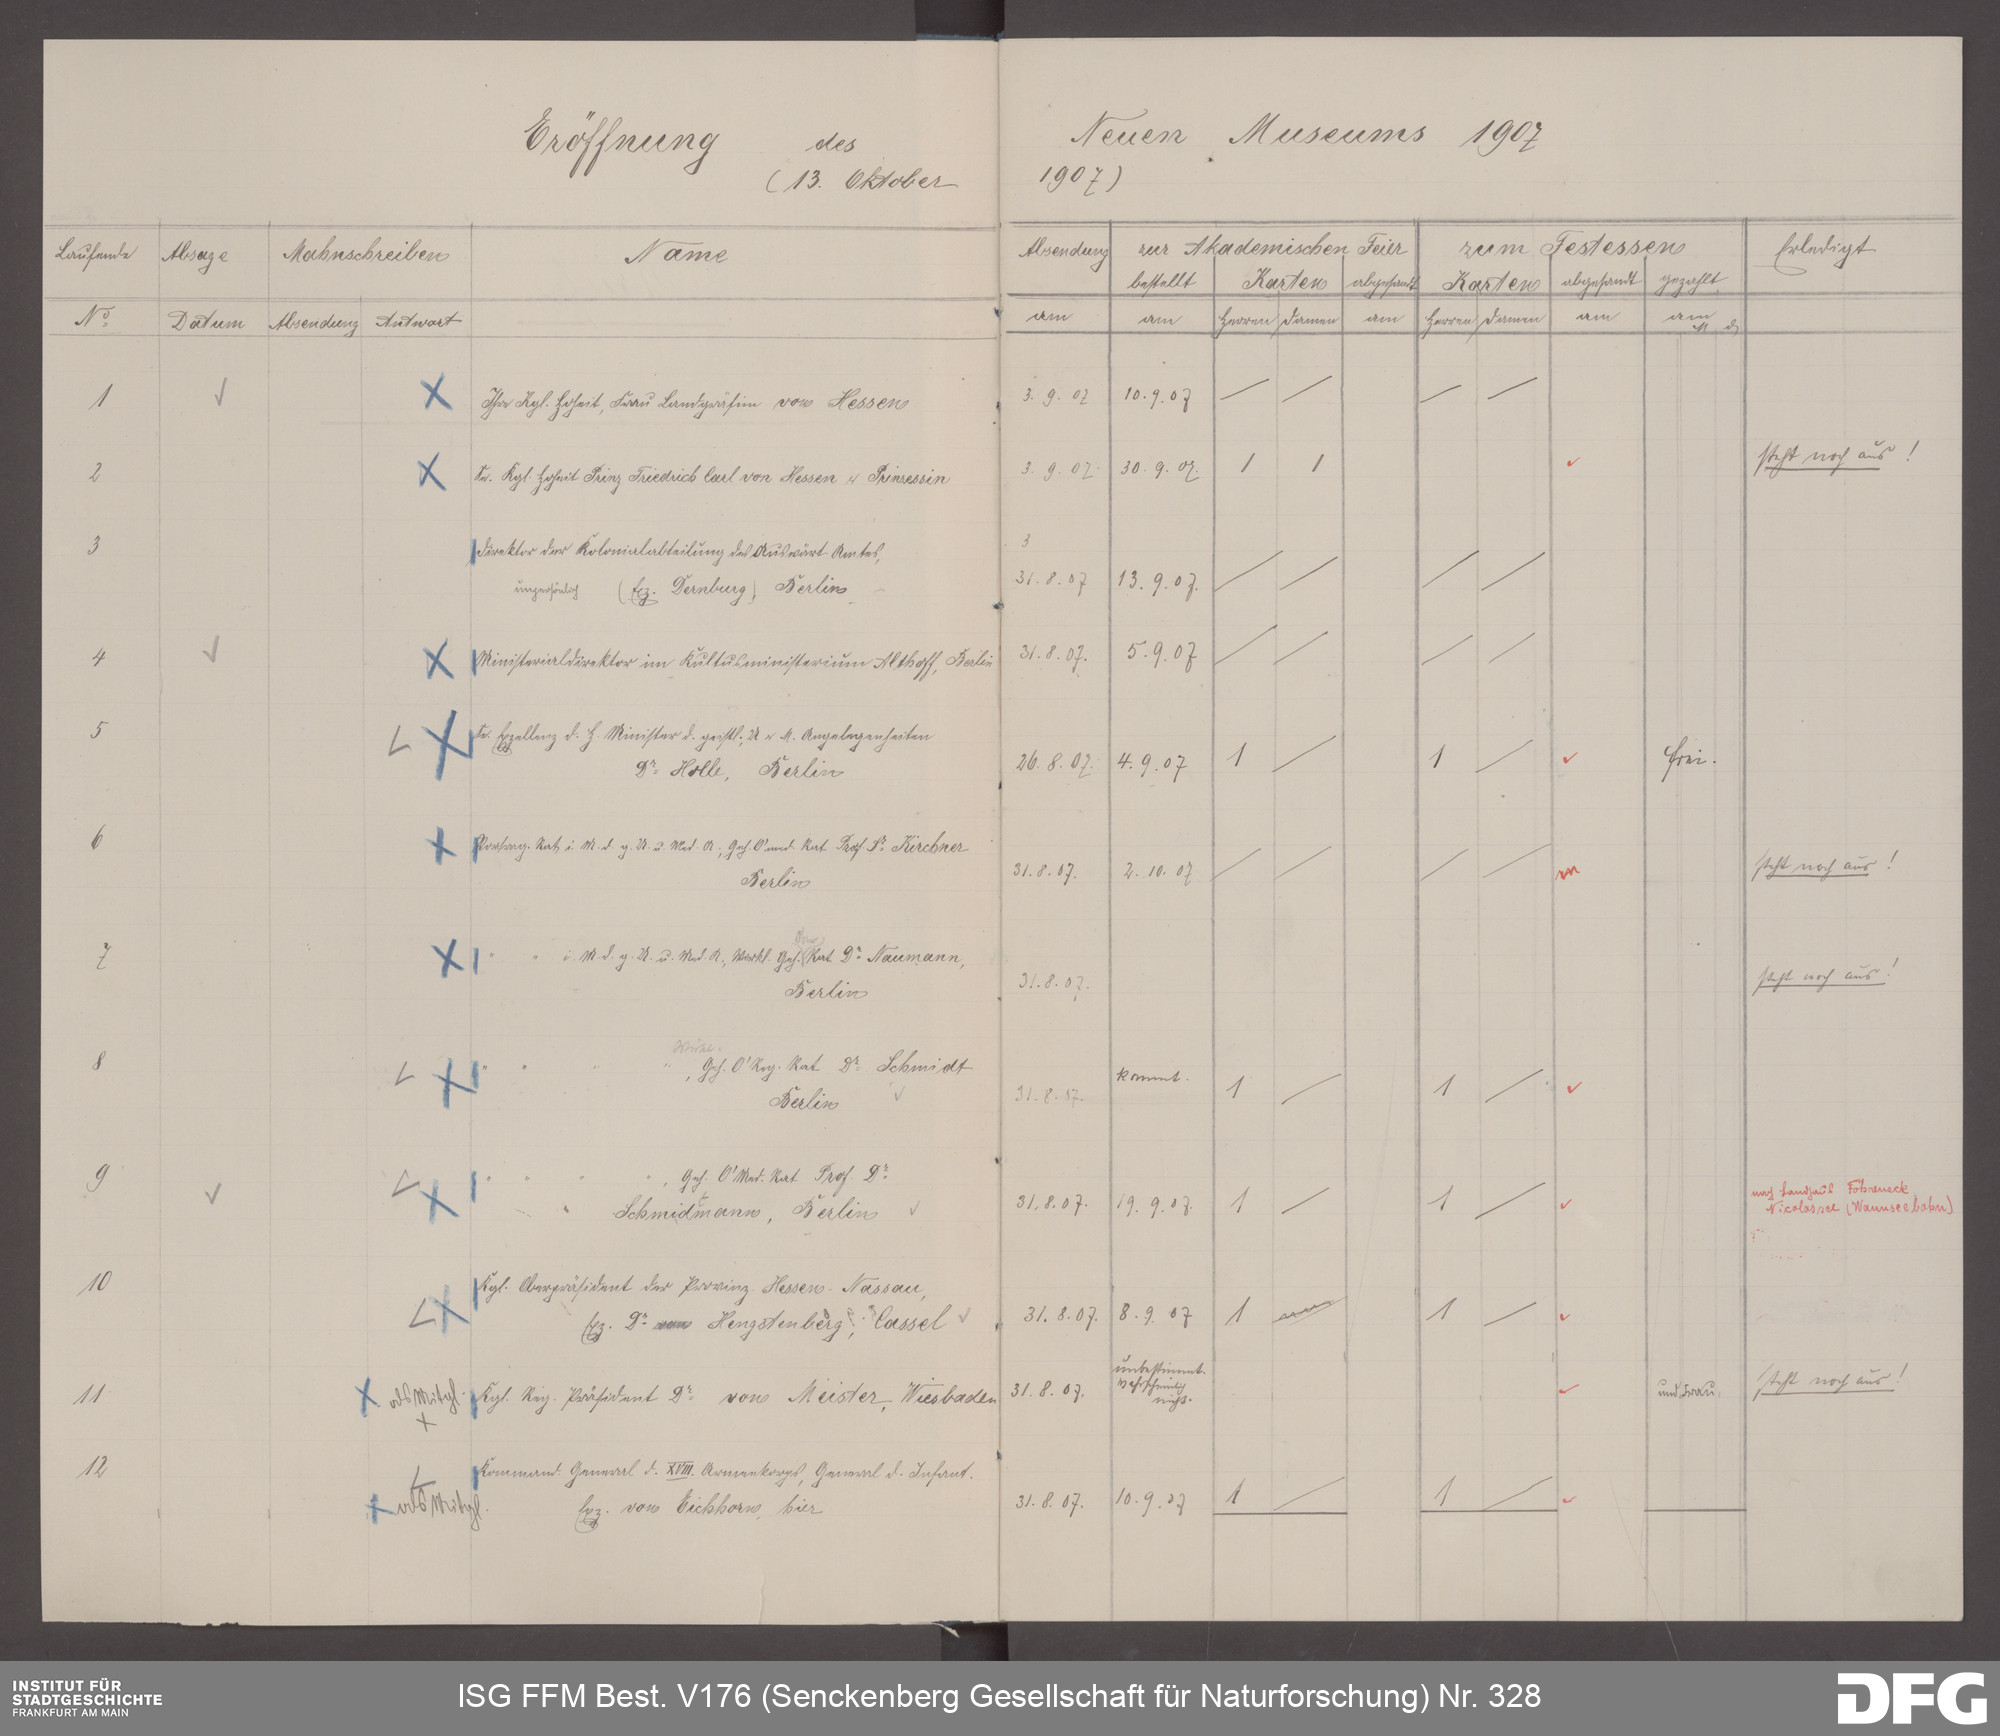 Eröffnung des Neuen Museums 1907
(13. Oktober 1907)
Laufende Absage Mahnschreiben Name Absendung zur Akademischen Feier zum Festessen Erledigt
bestellt Karten abgesandt Karten abgesandt gezahlt
No. Datum Absendung Antwort am am Herren Damen am Herren Damen am am
M. d
1 Ihre Kgl. Hoheit, Frau Landgräfin von Hessen 3. 9. 07 10. 9. 07
2 Se. Kgl. Hoheit Prinz Friedrich Carl von Hessen u Prinzessin 3. 9. 07. 30. 9. 07. 1 1 steht noch aus!
3 Direktor der Kolonialabteilung des Auswärt. Amtes, 3
(Exz. Dernburg) Berlin 31. 8. 07 13. 9. 07.
4 Ministerialdirektor im Kultusministerium Althoff, Berlin 31. 8. 07. 5. 9. 07
5 Se. Exzellenz d. H. Minister d. geistl., U. u. M. Angelegenheiten
Dr. Holle, Berlin 26. 8. 07. 4. 9. 07 1 1 frei.
6 Vortrag. Rat i. M. d. g. U. u. Med. A., Geh. O'med. Rat Prof. Dr. Kirchner
Berlin 31. 8. 07. 2. 10. 07 steht noch aus!
7 " " i. M. d. g. U. u. Med. A., Wirkl. Geh. Rat Dr. Naumann,
Berlin 31. 8. 07. steht noch aus!
Wirkl.
8 " " " " , Geh. O'Reg. Rat Dr. Schmidt kommt.
Berlin 31. 8. 07. 1 1
9 " " " " , Geh. O'Med. Rat Prof. Dr.
Schmidtmann, Berlin 31. 8. 07. 19. 9. 07. 1 1 nach Landhaus Föhreneck
Nicolassee (Wannseebahn)
10 Kgl. Oberpräsident der Provinz Hessen-Nassau,
Exz. Dr. von Hengstenberg, Cassel 31. 8. 07. 8. 9. 07 1 1
11 als Mitgl. Kgl. Reg. Präsident Dr. von Meister, Wiesbaden 31. 8. 07. unbestimmt. und Frau. steht noch aus!
wahrscheinlich
nicht.
12 Kommand. General d. XVIII. Armeekorps, General d. Infant.
als Mitgl. Exz. von Eichhorn, hier 31. 8. 07. 10. 9. 07 1 1
INSTITUT FÜR
STADTGESCHICHTE
FRANKFURT AM MAIN
ISG FFM Best. V176 (Senckenberg Gesellschaft für Naturforschung) Nr. 328
DFG